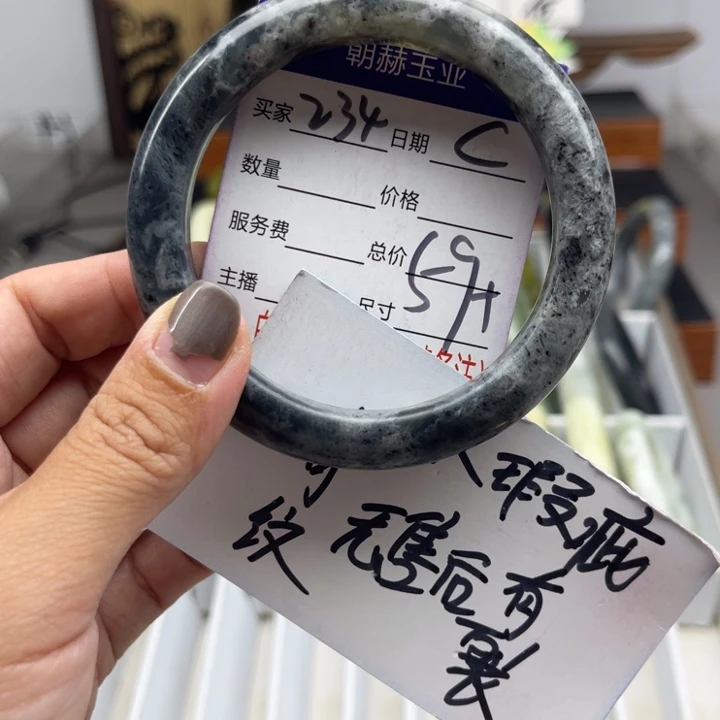 朝赫玉业
买家 234 日期 C
数量 价格
服务费 总价
主播 尺寸 59+
瑕疵
纹 无售后有
裂